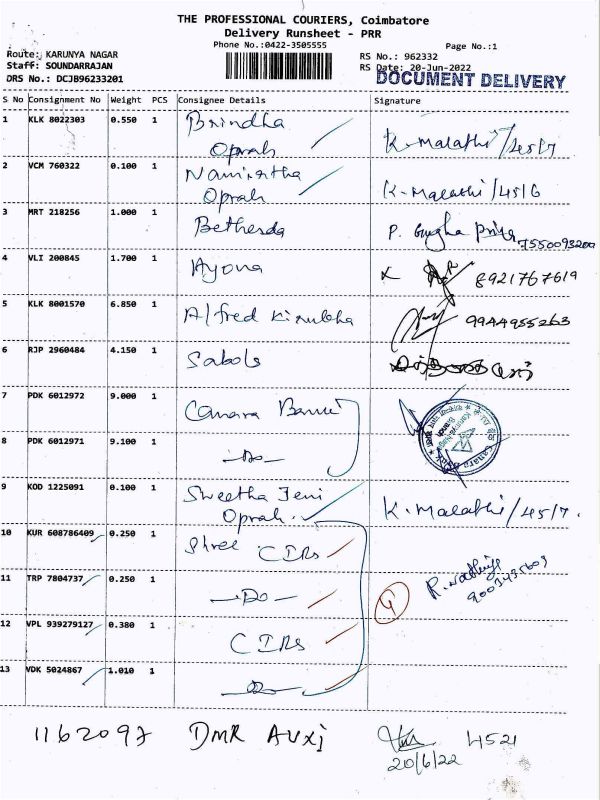 THE PROFESSIONAL COURIERS, Coimbatore
Delivery Runsheet - PRR
Phone No.:0422-3505555
Page No.:1
Route: KARUNYA NAGAR
RS No.: 962332
Staff: SOUNDARRAJAN
RS Date: 20-Jun-2022
DRS No.: DCJB96233201
DOCUMENT DELIVERY
S No Consignment No Weight PCS Consignee Details Signature
1 KLK 8022303 0.550 1 Brindha
Oprah K. Malathi/45/7
2 VCM 760322 0.100 1 Namiratha
Oprah K-Malathi/45/6
3 MRT 218256 1.000 1 Betherda P. Priya
7550093200
4 VLI 200845 1.700 1 Ayona 8921767619
5 KLK 8001570 6.850 1 Alfred Kirubha 9944955263
6 RJP 2960484 4.150 1 Sabols
7 PDK 6012972 9.000 1 Canara
8 PDK 6012971 9.100 1 -Do-
9 KOD 1225091 0.100 1 Swetha Jeni
Oprah. K. Malathi/45/7.
10 KUR 608786409 0.250 1 Shree CIRs
11 TRP 7804737 0.250 1 -Do-
9003435603
12 VPL 939279127 0.380 1 CIRs
13 VDK 5024867 1.010 1 -Do-
1162097 DMR 4521
20/6/22